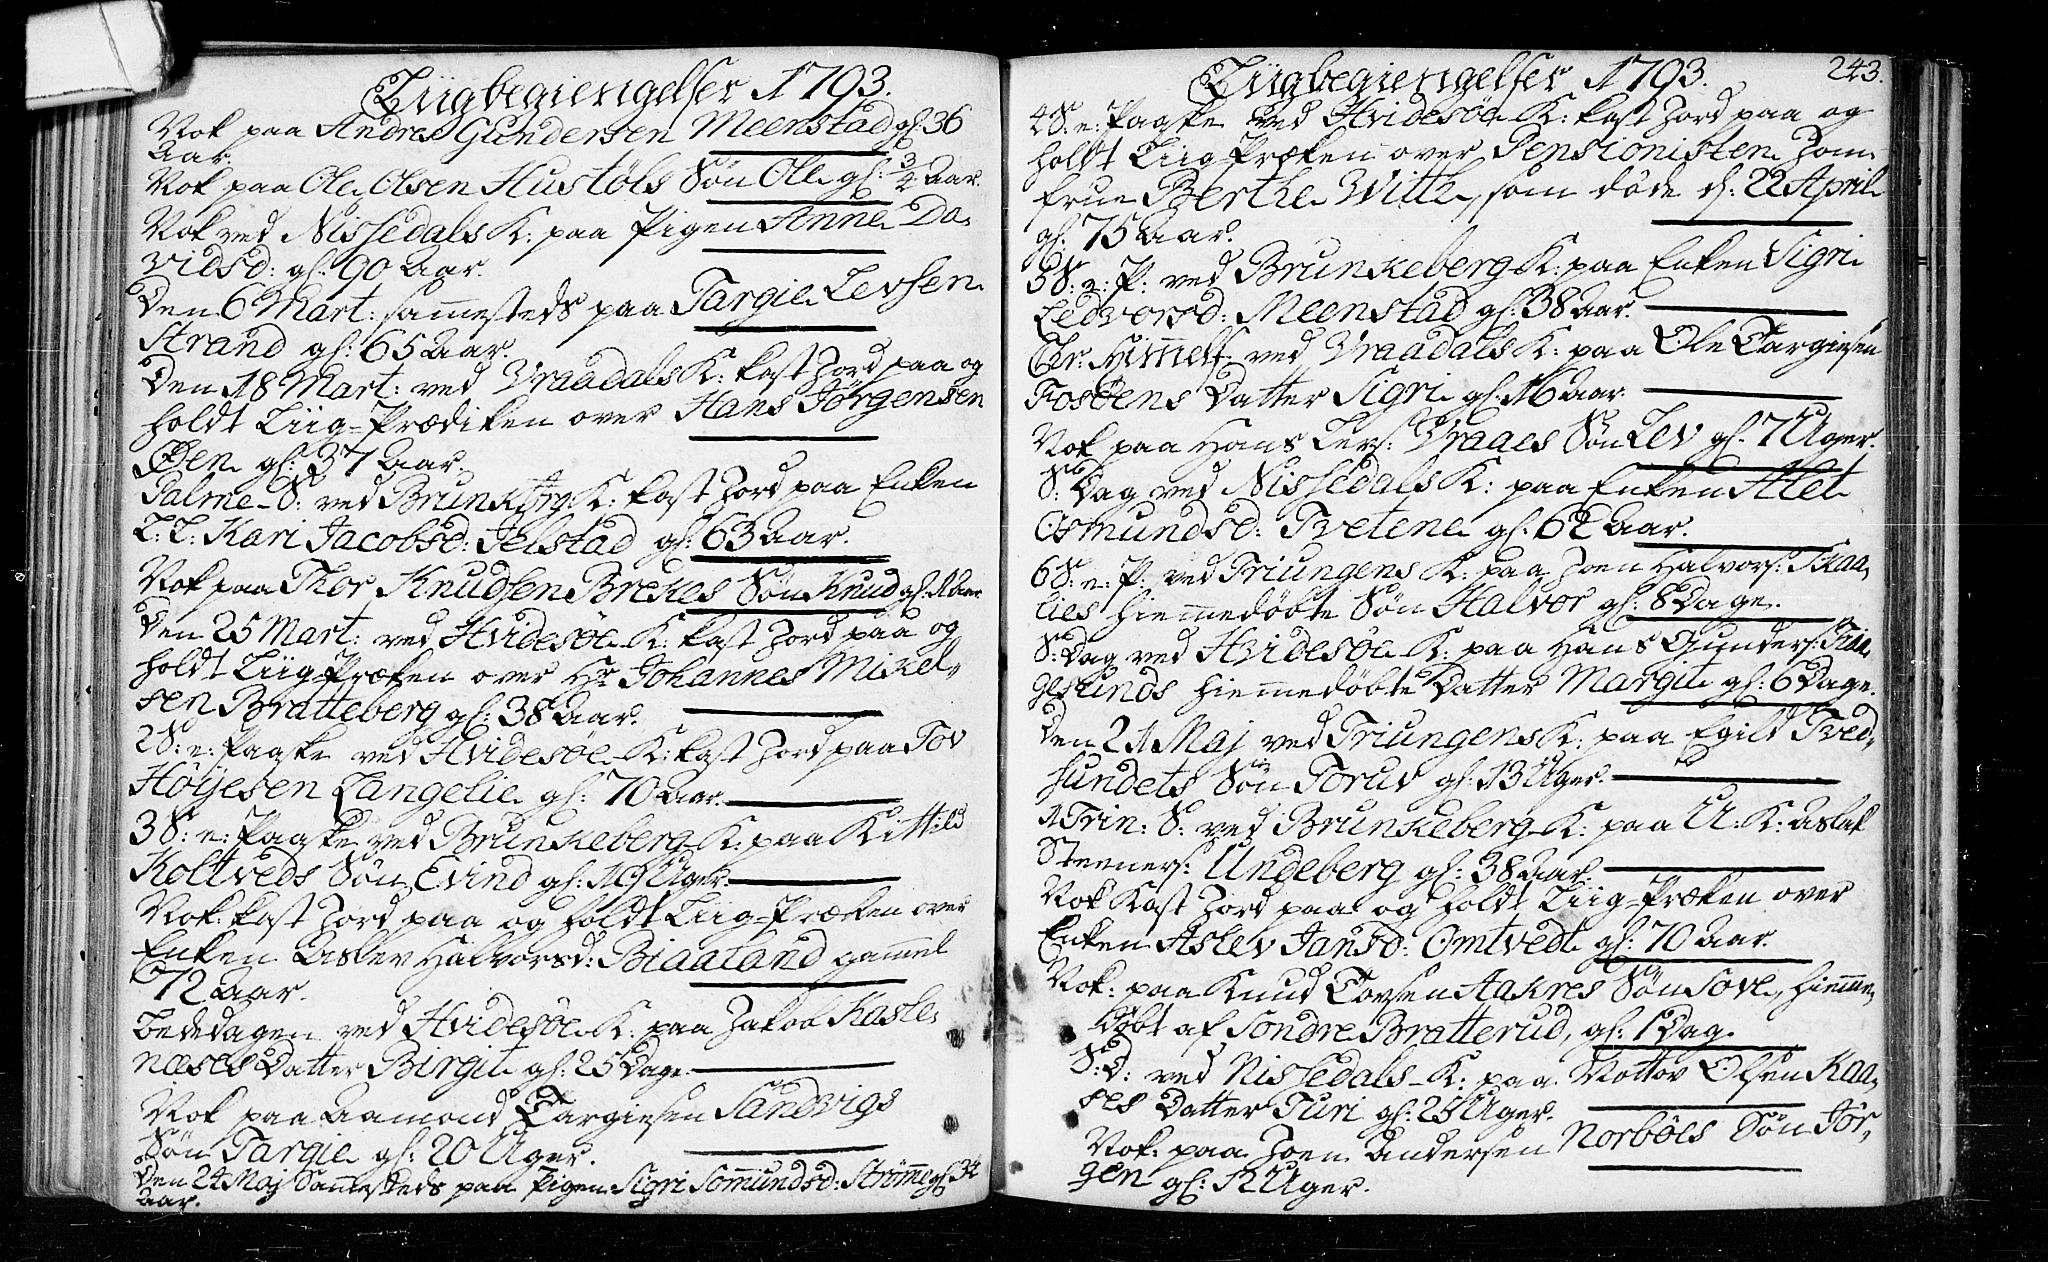 Liigbegiengelser 1793.
Nok paa Andres Gundersen Meenstad gl: 36
Aar.
Nok paa Ole Olsen Hustøls Søn Ole gl: 3/4 Aar.
Nok ved Nissedals K: paa Pigen Anne Da,
vidsd: gl: 90 Aar.
Den 6 Mart: sam̅esteds paa Targie Levsen
Strand gl: 65 Aar.
Den 18 Mart: ved Vraadals K: kast Jord paa og
holdt Liig-Prædiken over Hans Jörgensen
Øen gl: 37 Aar.
Palme-S: ved Brunkbrg K: kast Jord paa Enken
L: L: Kari Jacobsd: Jelstad gl: 63 Aar.
Nok paa Thor Knudsen Brekes Søn Knud gl: 1 Aar
Den 25 Mart: ved Hvidesøe K: kast Jord paa og
holdt Liig-Præken over Hr Johannes Mikel,
sen Bratteberg gl: 38 Aar.
2 S: e: Paaske ved Hvidesøe K: kast Jord paa Tov
Höyesen Langelie gl: 70 Aar.
3 S: e: Paaske ved Brunkeberg K: paa Kittild
Koltveds Søn Evind gl: 10 Uger.
Nok: kast Jord paa og holdt Liig-Præken over
Enken Aslev Halvorsd: Biaaland gam̅el
72 Aar.
Bededagen ved Hvidesøe K: paa Jakob Kasle,
næses Datter Birgit gl: 25 Dage.
Nok paa Aamond Targiesen Sandvigs
Søn Targie gl: 20 Uger.
Den 24 Maj Sam̅esteds paa Pigen Sigri Som̅undsd: Ströme gl: 34
Aar.
243.
Liigbegiengelser 1793.
4 S: e: Paaske ved Hvidesøe K: kast Jord paa og
holdt Liig Præken over Pensionisten Jom,
frue Berthe Witte, som døde d: 22 April
gl: 75 Aar.
5 S: e: P: ved Brunkeberg K: paa Enken Sigri
Ledvorsd: Meenstad gl: 38 Aar.
Chr: Him̅elf: ved Vraadals K: paa Ole Targiesen
Fosöens Datter Sigri gl: 16 Aar.
Nok paa Hans Levs: Vraaes Søn Lev gl: 7 Uger.
S: Dag ved Nissedals K: paa Enken Alet
Osmundsd: Tvetene gl: 62 Aar.
6 S: e: P: ved Triungens K: paa Joen Halvors: Skaa,
lies hiem̅edøbte Søn Halvor gl: 8 Dage.
S: Dag ved Hvidesøe K: paa Hans Gunders: Traa,
gesunds hiem̅edøbte Datter Margit gl: 6 Dage.
Den 21 Maj ved Triungens K: paa Egild Tved,
sundets Søn Toruv gl: 13 Uger.
1 Trin: S: ved Brunkeberg K: paa U: K: Aslak
Steeners: Undeberg gl: 38 Aar.
Nok Kast Jord paa og holdt Liig-Præken over
Enken Aslev Jansd: Omtvedt gl: 70 Aar.
Nok: paa Knud Tovsen Aakres Søn Tove, hiem̅e,
døbt af Sondre Bratterud, gl: 1 Dag.
S: D: ved Nissedals-K: paa Nottov Olsen Kaa,
ses Datter Turi gl: 25 Uger.
Nok: paa Joen Andersen Norböes Søn Jör,
gen gl: 12 Uger.